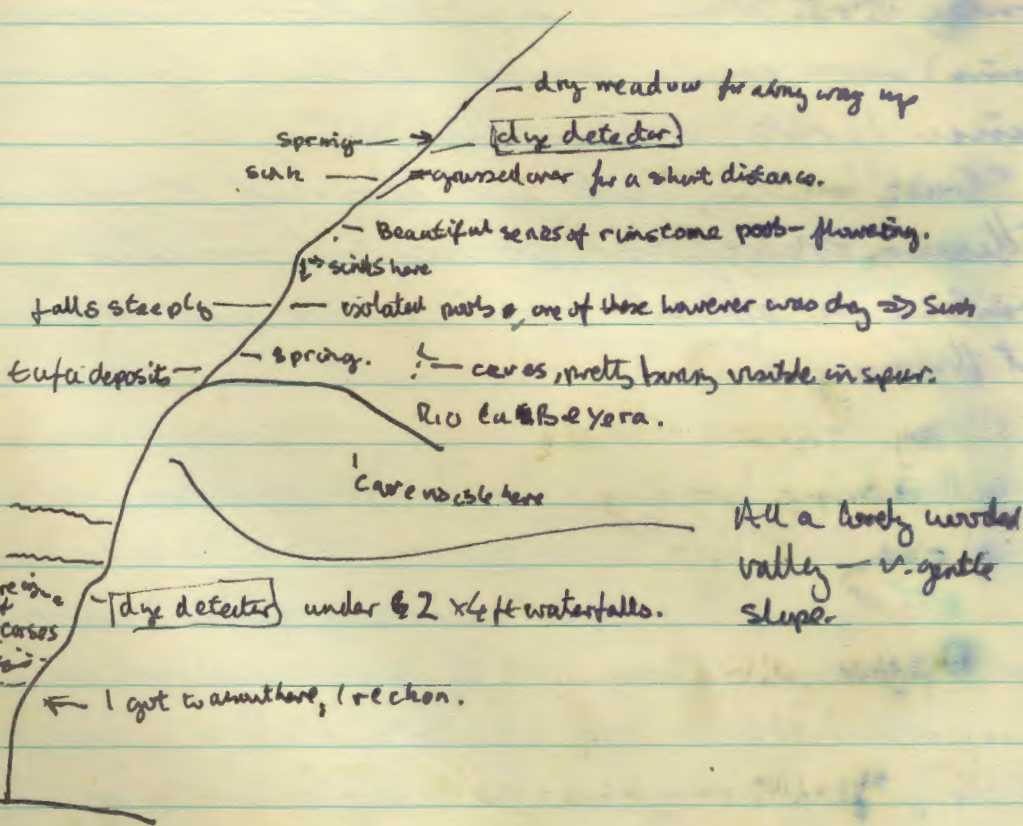 dry meadow for a long way up
spring
dye detector
sink
grassed over for a short distance.
Beautiful series of rimstone pools - flowering.
sinks here
falls steeply
isolated pools, one of these however was dry => Sinks
tufa deposits
spring.
caves, pretty visible in spur.
Rio CaBeyera.
Cave visible here
All a lovely wooded
valley - v. gentle
slope.
dye detector under 2 x 4 ft waterfalls.
I got to about here, I reckon.